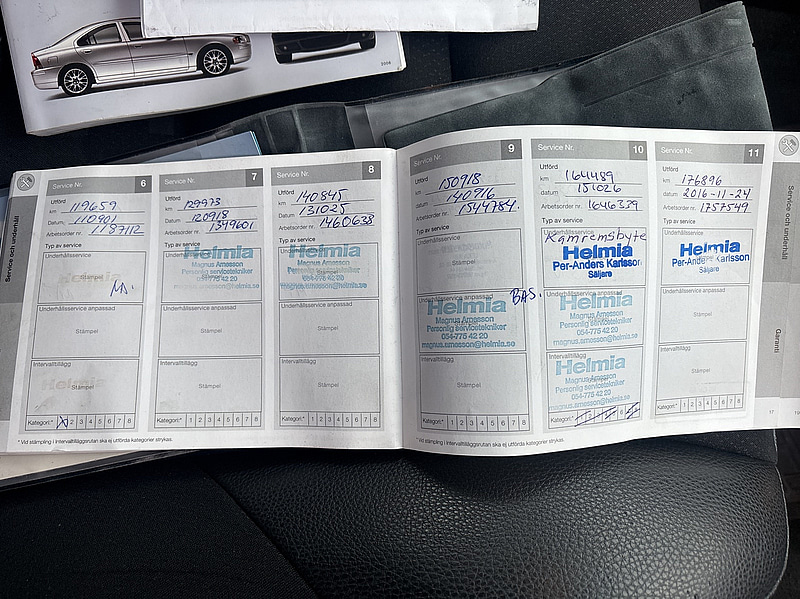 2006
Service och underhåll
Service Nr. 6
Utförd
km 119659
Datum 110901
Arbetsorder nr. 1187112
Typ av service
Underhållsservice
Stämpel
Underhållsservice anpassad
Stämpel
Intervalltillägg
Helmia
Stämpel
Kategori:* 1 2 3 4 5 6 7 8
* Vid stämpling i Intervalltilläggsrutan ska ej utförda kategorier strykas.
Service Nr. 7
Utförd
km 129973
Datum 120918
Arbetsorder nr. 1349601
Typ av service
Underhållsservice
Helmia
Magnus Arnesson
Personlig servicetekniker
054-775 42 20
magnus.arnesson@helmia.se
Underhållsservice anpassad
Stämpel
Intervalltillägg
Stämpel
Kategori:* 1 2 3 4 5 6 7 8
Service Nr. 8
Utförd
km 140845
Datum 131025
Arbetsorder nr. 1460638
Typ av service
Underhållsservice
Helmia
Magnus Arnesson
Personlig servicetekniker
054-775 42 20
magnus.arnesson@helmia.se
Underhållsservice anpassad
Stämpel
Intervalltillägg
Stämpel
Kategori:* 1 2 3 4 5 6 7 8
Service Nr. 9
Utförd
km 150918
datum 140916
Arbetsorder nr. 1544784
Typ av service
Underhållsservice
Stämpel
Underhållsservice anpassad
BAS.
Helmia
Magnus Arnesson
Personlig servicetekniker
054-775 42 20
magnus.arnesson@helmia.se
Intervalltillägg
Stämpel
Kategori:* 1 2 3 4 5 6 7 8
* Vid stämpling i Intervalltilläggsrutan ska ej utförda kategorier strykas.
Service Nr. 10
Utförd
km 164489
datum 151026
Arbetsorder nr. 1646359
Typ av service
Kamremsbyte
Underhållsservice
Helmia
Per-Anders Karlsson
Säljare
Underhållsservice anpassad
Helmia
Magnus Arnesson
Personlig servicetekniker
054-775 42 20
magnus.arnesson@helmia.se
Intervalltillägg
Helmia
Magnus Arnesson
Personlig servicetekniker
054-775 42 20
magnus.arnesson@helmia.se
Kategori:*
Service Nr. 11
Utförd
km 176896
datum 2016-11-24
Arbetsorder nr. 1757549
Typ av service
Underhållsservice
Helmia
Per-Anders Karlsson
Säljare
Underhållsservice anpassad
Stämpel
Intervalltillägg
Stämpel
Kategori:* 1 2 3 4 5 6 7 8
17
Service och underhåll
Garanti